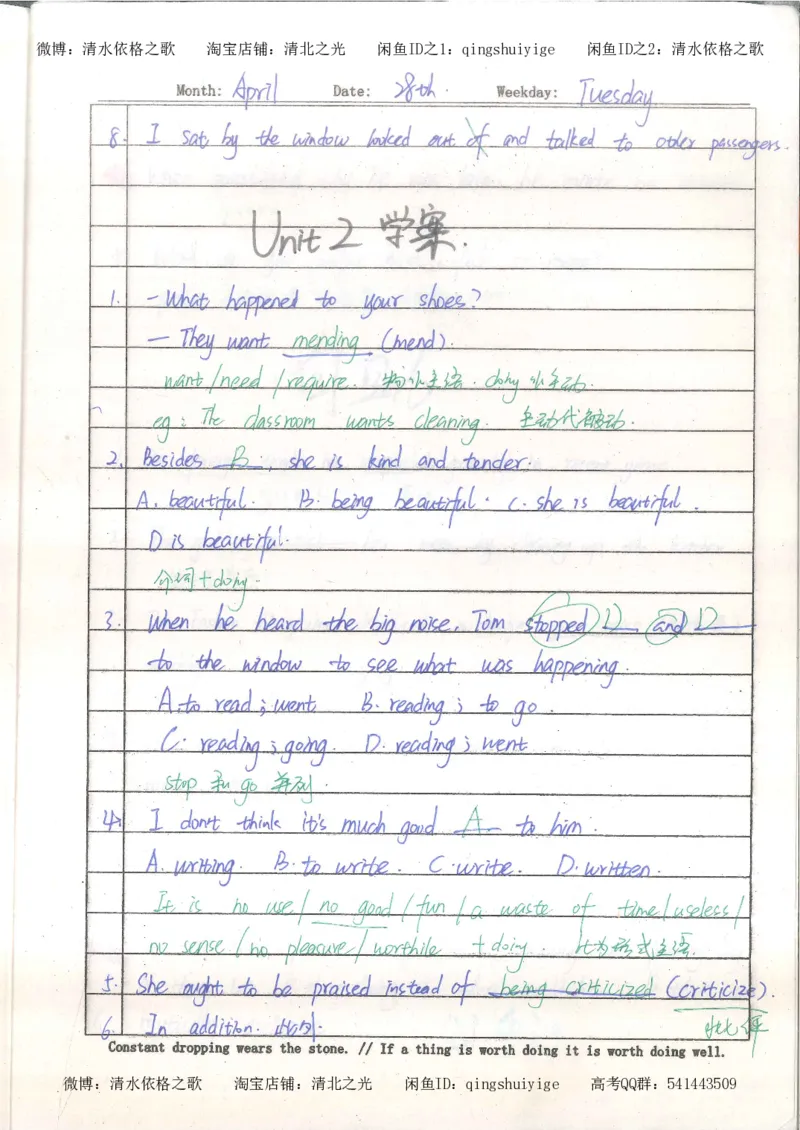 微博：清水依格之歌 淘宝店铺：清北之光 闲鱼ID之1：qingshuiyige 闲鱼ID之2：清水依格之歌
Month: April Date: 28th. Weekday: Tuesday
8. I sat by the window looked out of and talked to other passengers.
Unit 2 学案.
1. - What happened to your shoes?
— They want mending (mend).
want/need/require. 物作主语. doing 表主动.
eg: The classroom wants cleaning. 主动代替被动.
2. Besides B, she is kind and tender.
A. beautiful. B. being beautiful. C. she is beautiful.
D is beautiful.
介词+doing.
3. When he heard the big noise, Tom stopped D and D
to the window to see what was happening.
A. to read; went B. reading; to go.
C. reading; going. D. reading; went
stop 和 go 并列.
4. I don't think it's much good A to him.
A. writing. B. to write. C. write. D. written.
It is no use/no good/fun/a waste of time/useless/
no sense/no pleasure/worthile +doing. It为形式主语.
5. She ought to be praised instead of being criticized (criticize).
6. In addition. 此外. 批评
Constant dropping wears the stone. // If a thing is worth doing it is worth doing well.
微博：清水依格之歌 淘宝店铺：清北之光 闲鱼ID：qingshuiyige 高考QQ群：541443509